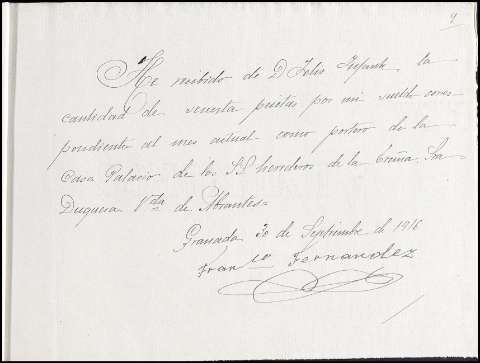 9
He recibido de D Felix Infante, la
cantidad de sesenta pesetas por mi sueldo corres
pondiente al mes actual como portero de la
Casa Palacio de los S.S herederos de la Excma. Sra
Duquesa Vda de Abrantes=
Granada 30 de Septiembre de 1916
Franco Fernandez